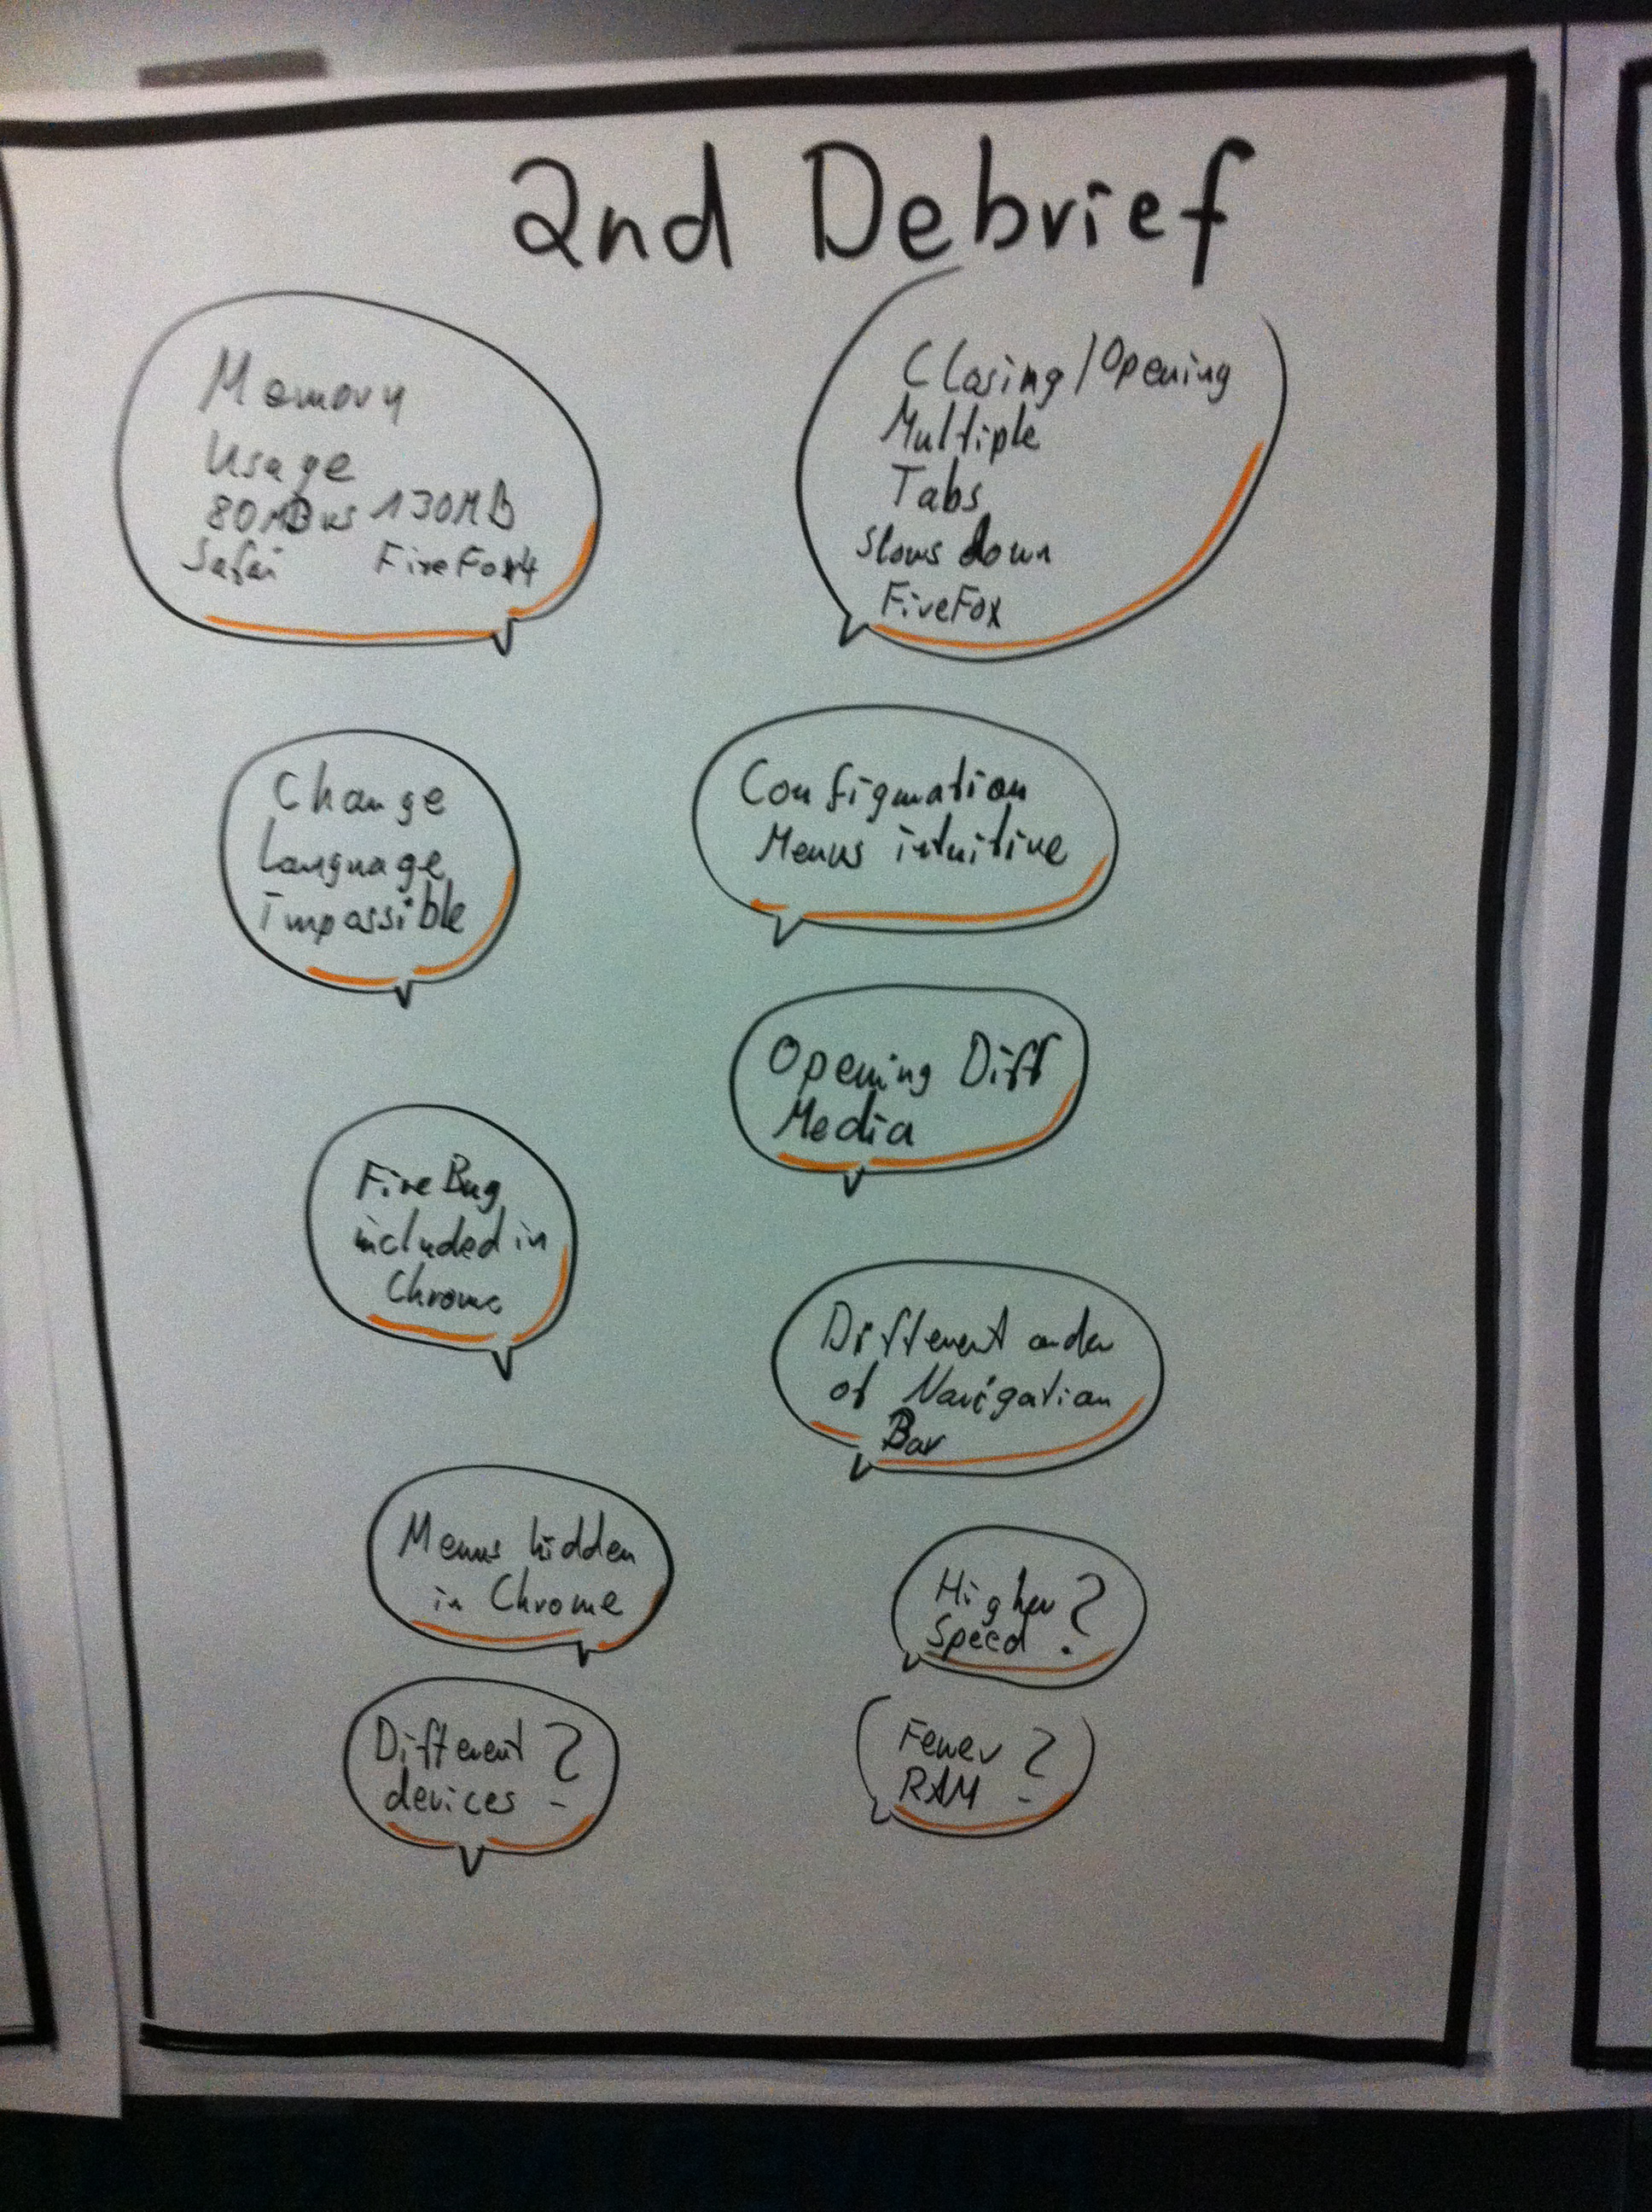 2nd Debrief
Memory
Usage
80MB vs 130MB
Safari FireFox4
Closing/Opening
Multiple
Tabs
slows down
FireFox
Change
Language
Impossible
Configuration
Menus intuitive
Opening Diff
Media
FireBug
included in
Chrome
Different order
of Navigation
Bar
Menus hidden
in Chrome
Higher
Speed ?
Different
devices ?
Fewer
RAM ?